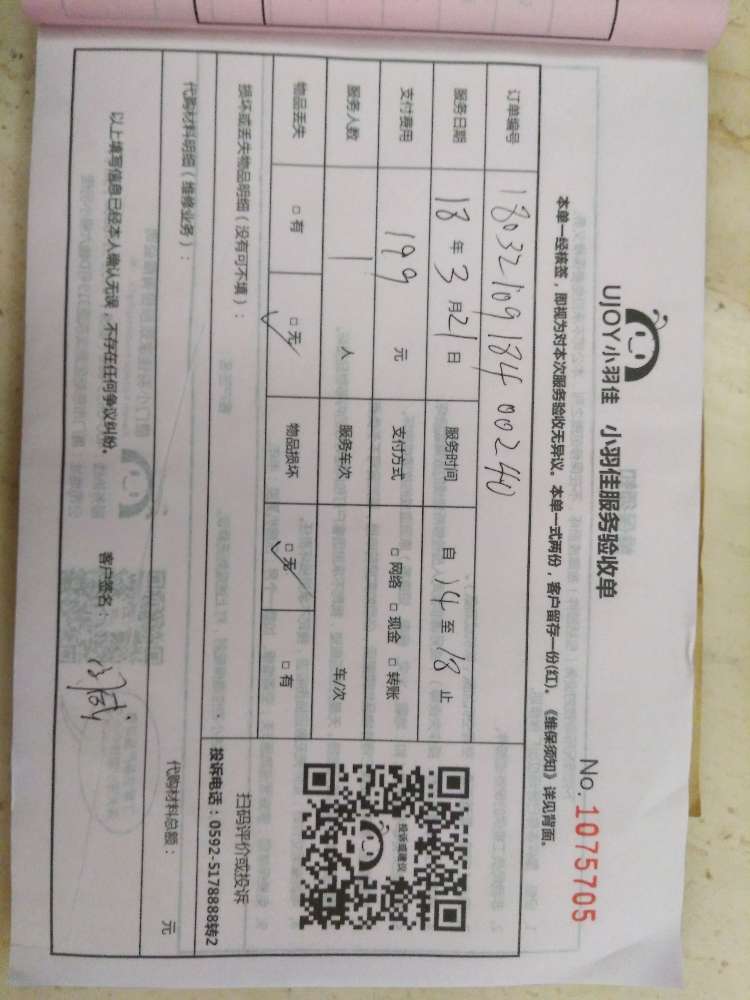 UJOY小羽佳 小羽佳服务验收单
No. 1075705
本单一经核签，即视为对本次服务验收无异议。本单一式两份，客户留存一份(红)。《维保须知》详见背面。
订单编号 1803210918400240
服务日期 18 年 3 月 21 日 服务时间 自 14 至 18 止
支付费用 199 元 支付方式 □ 网络 □ 现金 □ 转账
服务人数 1 人 服务车次 车/次
物品丢失 □ 有 □ 无 ✓ 物品损坏 □ 无 ✓ □ 有
投诉建议
扫码评价或投诉
投诉电话：0592-5178888转2
损坏或丢失物品明细（没有可不填）：
代购材料明细（维修业务）： 代购材料总额： 元
以上填写信息已经本人确认无误，不存在任何争议纠纷。 客户签名：